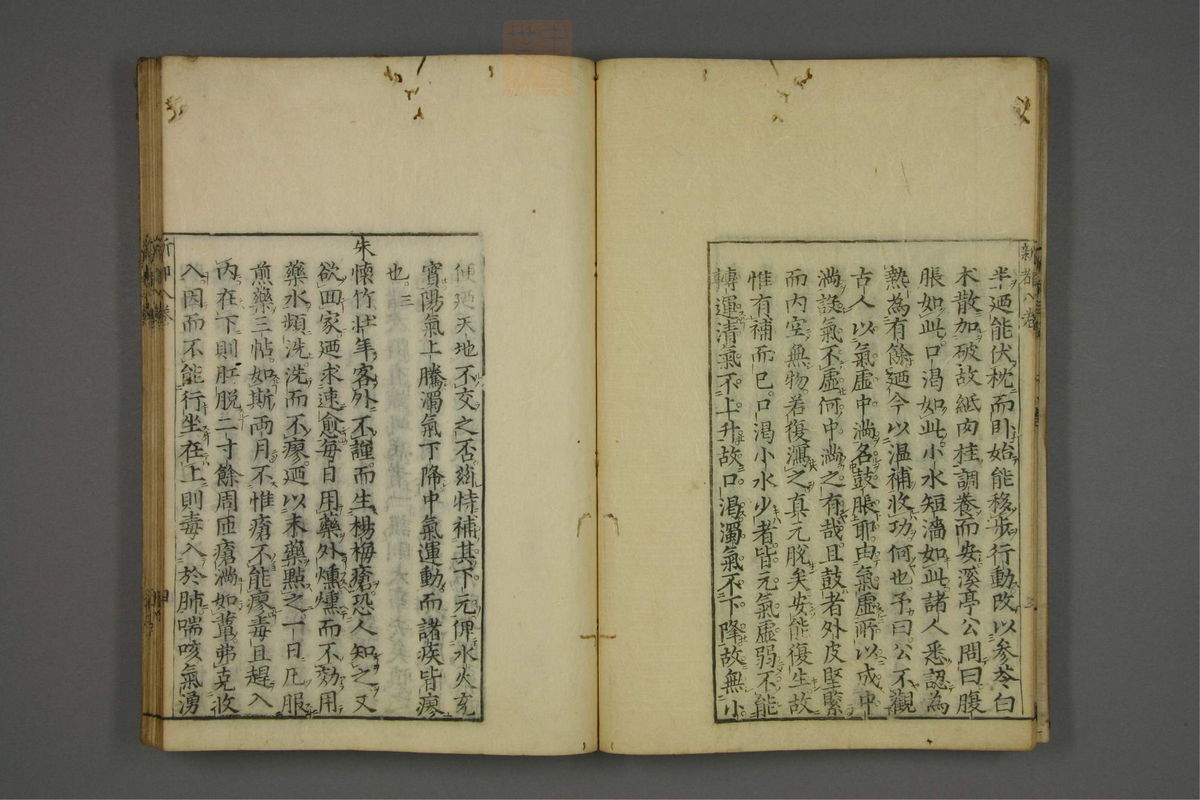 半迺能伏枕而卧始能移步行動改以參苓白
术散加破故紙肉桂調養而安溪亭公問曰腹
脹如此口渴如此小水短濇如此諸人悉認為
熱為有餘迺今以温補收功何也予曰公不觀
古人以氣虚中滿名鼓脹耶由氣虚所以成中
滿誠氣不虚何中滿之有哉且鼓者外皮堅緊
而内空無物若復瀉之真元脫矣安能復生故
惟有補而已口渴小水少者皆元氣虚弱不能
轉運清氣不上升故口渴濁氣不下降故無小
便迺天地不交之否兹特補其下元俾水火交
實陽氣上騰濁氣下降中氣運動而諸疾皆瘳
也
朱懷竹壯年客外不謹而生楊梅瘡恐人知之又
欲回家迺求速愈每日用藥外燻燻而不効用
藥水頻洗洗而不瘳迺以末藥點之一日
煎藥三帖如斯兩月不惟瘡不能瘳毒且趕入
内在下則肛脫二寸餘周匝瘡滿如葦弗克收
入因而不能行坐在上則毒入於肺喘咳氣湧